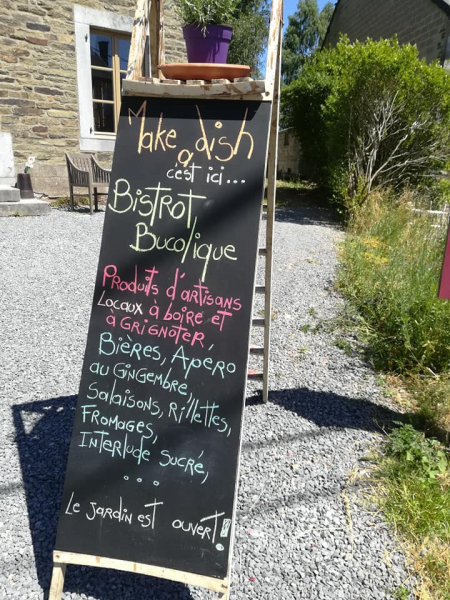 Make a dish
c'est ici...
Bistrot
Bucolique
Produits d'artisans
Locaux à boire et
à grignoter,
Bières, Apéro
au gingembre,
Salaisons, Rillettes,
Fromages,
Interlude sucré,
...
Le jardin est ouvert!